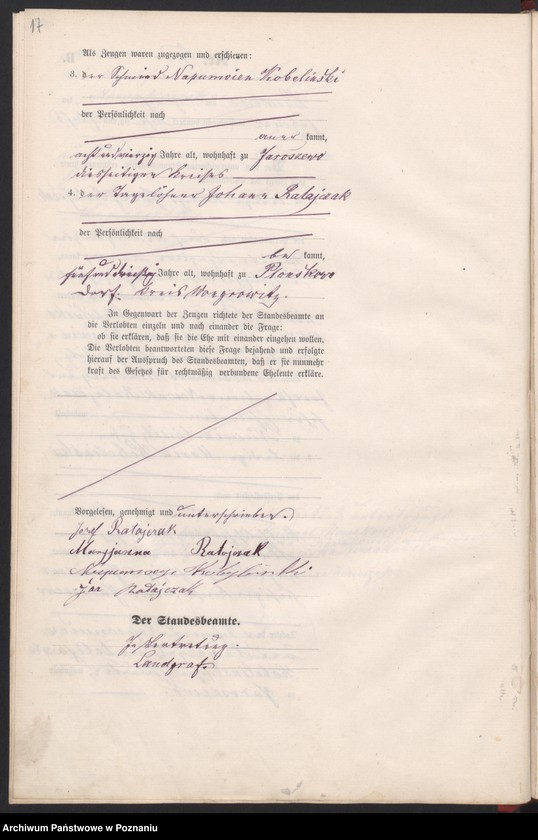 17
Als Zeugen waren zugezogen und erschienen:
3. der Schmied Napumocen Kobelinski
der Persönlichkeit nach
aner kannt,
acht und vierzig Jahre alt, wohnhaft zu Jaroszewo
diesseitigen Kreises
4. der Tagelöhner Johann Ratajczak
der Persönlichkeit nach
be kannt,
fünfunddreißig Jahre alt, wohnhaft zu
Dorf. Kreis Wongrowitz.
In Gegenwart der Zeugen richtete der Standesbeamte an
die Verlobten einzeln und nach einander die Frage:
ob sie erklären, daß sie die Ehe mit einander eingehen wollen.
Die Verlobten beantworteten diese Frage bejahend und erfolgte
hierauf der Ausspruch des Standesbeamten, daß er sie nunmehr
kraft des Gesetzes für rechtmäßig verbundene Eheleute erkläre.
Vorgelesen, genehmigt und unterschrieben.
Józef Ratajczak
Maryjanna Ratajczak
Nepumocyn Kobyliński
Jan Ratajczak
Der Standesbeamte.
In Vertretung.
Landgraf.
Archiwum Państwowe w Poznaniu